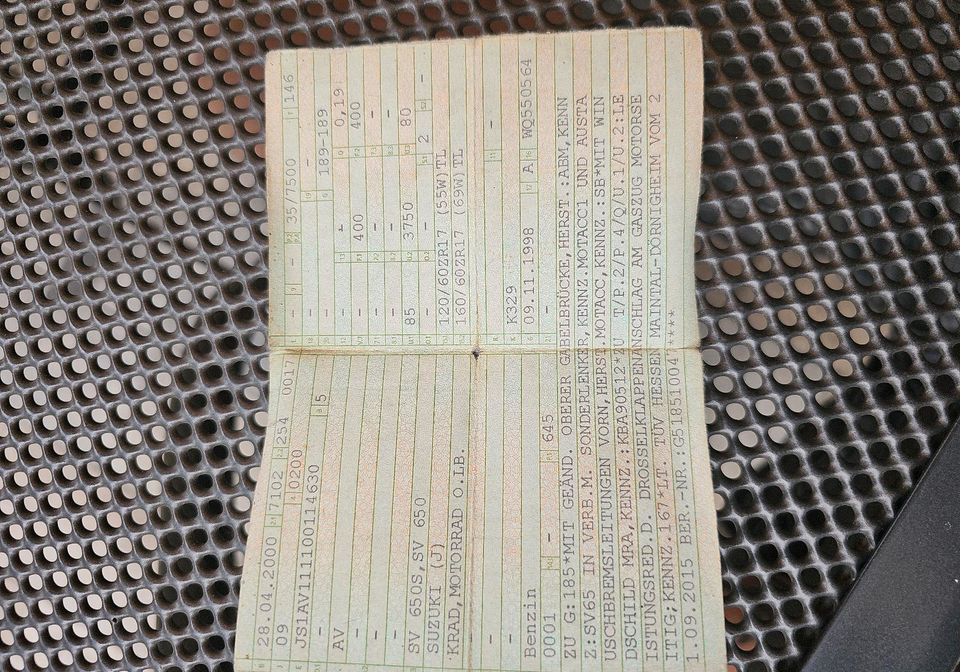 B 28.04.2000 2.1 7102 2.2 254 0017 - - 35/7500 146
J 09 4 0200 - -
JS1AV111100114630 - 189-189
- 3 5 - 0,19
AV 400 - 400
- - -
- - -
SV 650S,SV 650 85 3750 80
SUZUKI (J) - - 2 -
KRAD,MOTORRAD O.LB. 120/60ZR17 (55W)TL
160/60ZR17 (69W)TL
- -
- K329
Benzin 09.11.1998 A WQ550564
0001 - 645
ZU G:185*MIT GEÄND. OBERER GABELBRÜCKE,HERST.:ABM,KENN
Z:SV65 IN VERB.M. SONDERLENKER,KENNZ.MOTACC1 UND AUSTA
USCHBREMSLEITUNGEN VORN,HERST.MOTACC,KENNZ.:SB*MIT WIN
DSCHILD MRA,KENNZ.:KBA90512*ZU T/P.2/P.4/Q/U.1/U.2:LE
ISTUNGSRED.D. DROSSELKLAPPENANSCHLAG AM GASZUG MOTORSE
ITIG;KENNZ.167*LT. TÜV HESSEN MAINTAL-DÖRNIGHEIM VOM 2
1.09.2015 BER.-NR.:G518510047****